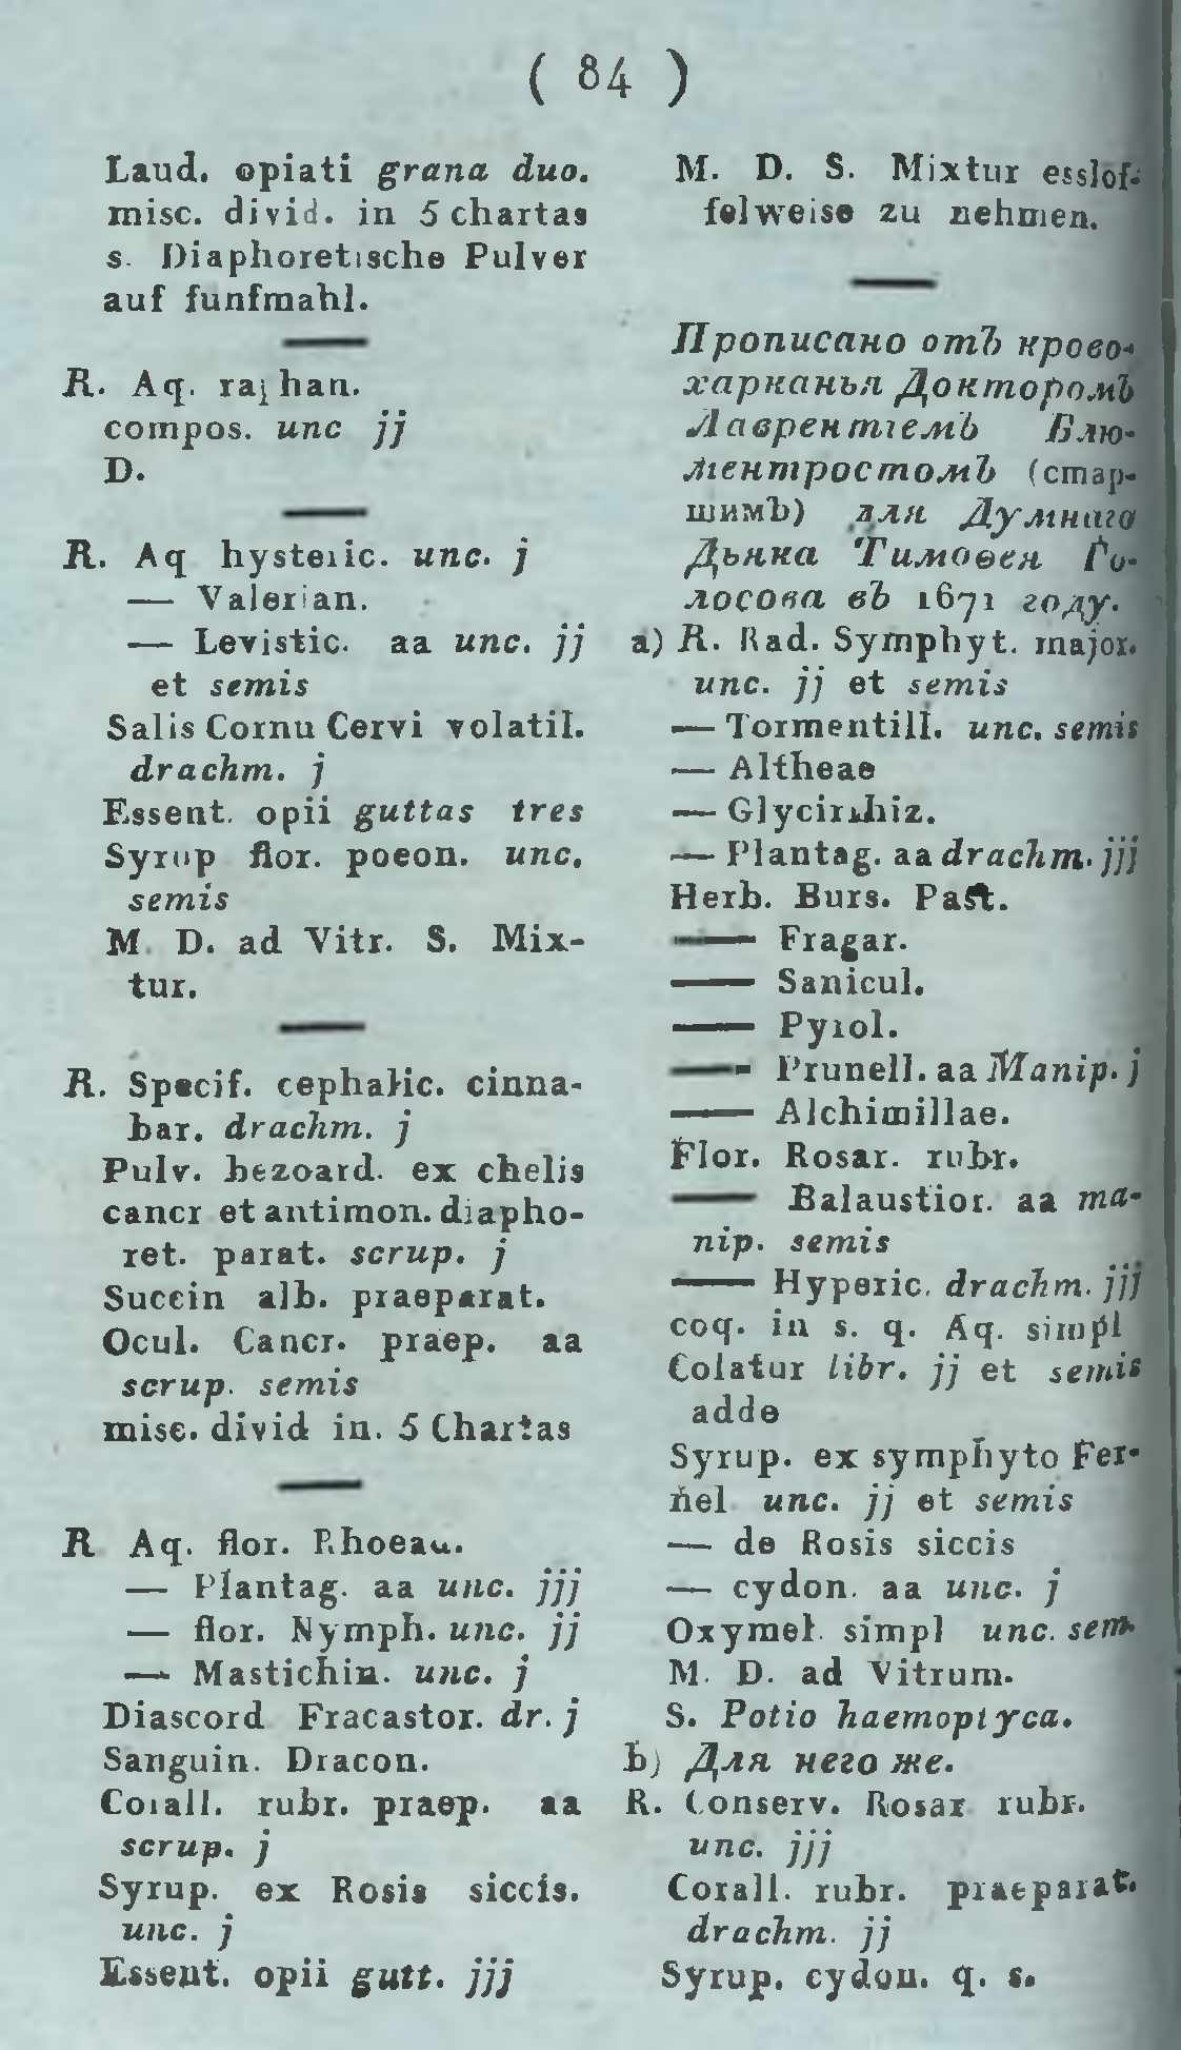 ( 84 )
Laud. opiati grana duo.
misc. divid. in 5 chartas
s. Diaphoretische Pulver
auf funfmahl.
R. Aq. raphan.
compos. unc jj
D.
R. Aq hysteric. unc. j
— Valerian.
— Levistic. aa unc. jj
et semis
Salis Cornu Cervi volatil.
drachm. j
Essent. opii guttas tres
Syrup flor. poeon. unc.
semis
M. D. ad Vitr. S. Mix-
tur.
R. Specif. cephalic. cinna-
bar. drachm. j
Pulv. bezoard. ex chelis
cancr et antimon. diapho-
ret. parat. scrup. j
Succin alb. praeparat.
Ocul. Cancr. praep. aa
scrup. semis
misc. divid in. 5 Chartas
R Aq. flor. Rhoead.
— Plantag. aa unc. jjj
— flor. Nymph. unc. jj
— Mastichin. unc. j
Diascord Fracastor. dr. j
Sanguin. Dracon.
Corall. rubr. praep. aa
scrup. j
Syrup. ex Rosis siccis.
unc. j
Essent. opii gutt. jjj
M. D. S. Mixtur esslof-
felweise zu nehmen.
Прописано отъ крово-
харканья Докторомъ
Лаврентіемъ Блю-
ментростомъ (стар-
шимъ) для Думнаго
Дьяка Тимоѳея Го-
лосова въ 1671 году.
a) R. Rad. Symphyt. major.
unc. jj et semis
— Tormentill. unc. semis
— Altheae
— Glycirrhiz.
— Plantag. aa drachm. jjj
Herb. Burs. Past.
— Fragar.
— Sanicul.
— Pyrol.
— Prunell. aa Manip. j
— Alchimillae.
Flor. Rosar. rubr.
— Balaustior. aa ma-
nip. semis
— Hyperic. drachm. jjj
coq. in s. q. Aq. simpl
Colatur libr. jj et semis
adde
Syrup. ex symphyto Fer-
nel unc. jj et semis
— de Rosis siccis
— cydon. aa unc. j
Oxymel. simpl unc. sem.
M. D. ad Vitrum.
S. Potio haemoptyca.
b) Для него же.
R. Conserv. Rosar rubr.
unc. jjj
Corall. rubr. praeparat.
drachm. jj
Syrup. cydon. q. s.